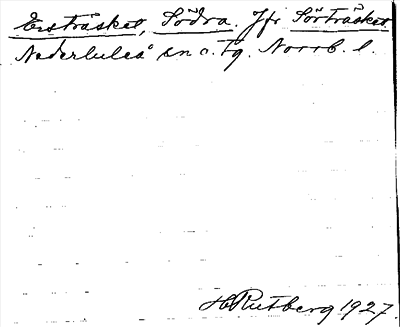 Ersträsket, Södra. Jfr Sörträsket.
Nederluleå sn o. tg. Norrb. l.
H Rutberg 1927.